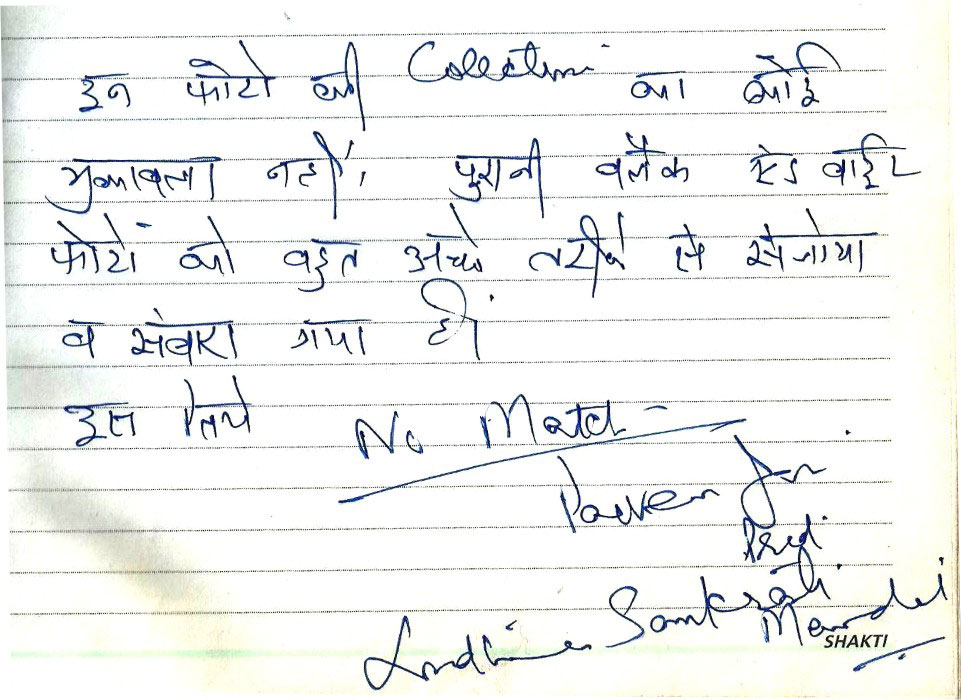 इन फोटो की Collection का कोई
मुकाबला नहीं, पुरानी ब्लैक एंड वाईट
फोटो को बहुत अच्छे तरीके से संजोया
व संवारा गया है।
इस लिये No Match
Parveen
Pred
Sanskrati
Mandi
SHAKTI